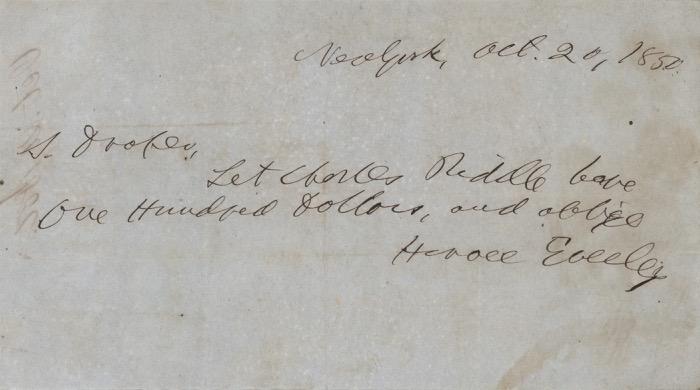 New York, Oct. 20, 1850.
S. Draper,
Let Charles Riddle have
One Hundred Dollars, and oblige
Horace Greeley